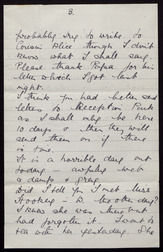 3.
probably try to write to
Cousin Alice though I don't
know what I shall say.
Please thank Papa for his
letter which I got last
night.
I think you had better send
letters to Reception Park
as I shall only be here
10 days & then they will
send them on if there
is time.
It is a horrible day out
today - awfully wet
& damp & grey.
Did I tell you I met Mrs
Hosking - R. the other day?
I knew she was here but
had forgotten it. I went to
tea with her yesterday. She